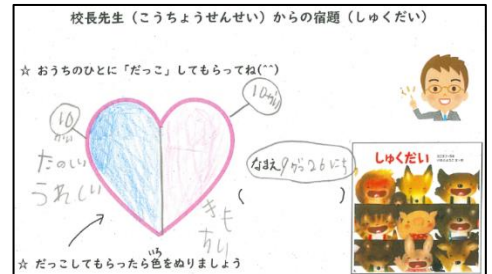 校長先生（こうちょうせんせい）からの宿題（しゅくだい）
☆ おうちのひとに「だっこ」してもらってね(^^)
10かい
10かい
たのしい
うれしい
なまえ 9がつ26にち
(　　　　　)
きもちい
しゅくだい
☆ だっこしてもらったら色をぬりましょう
いろ